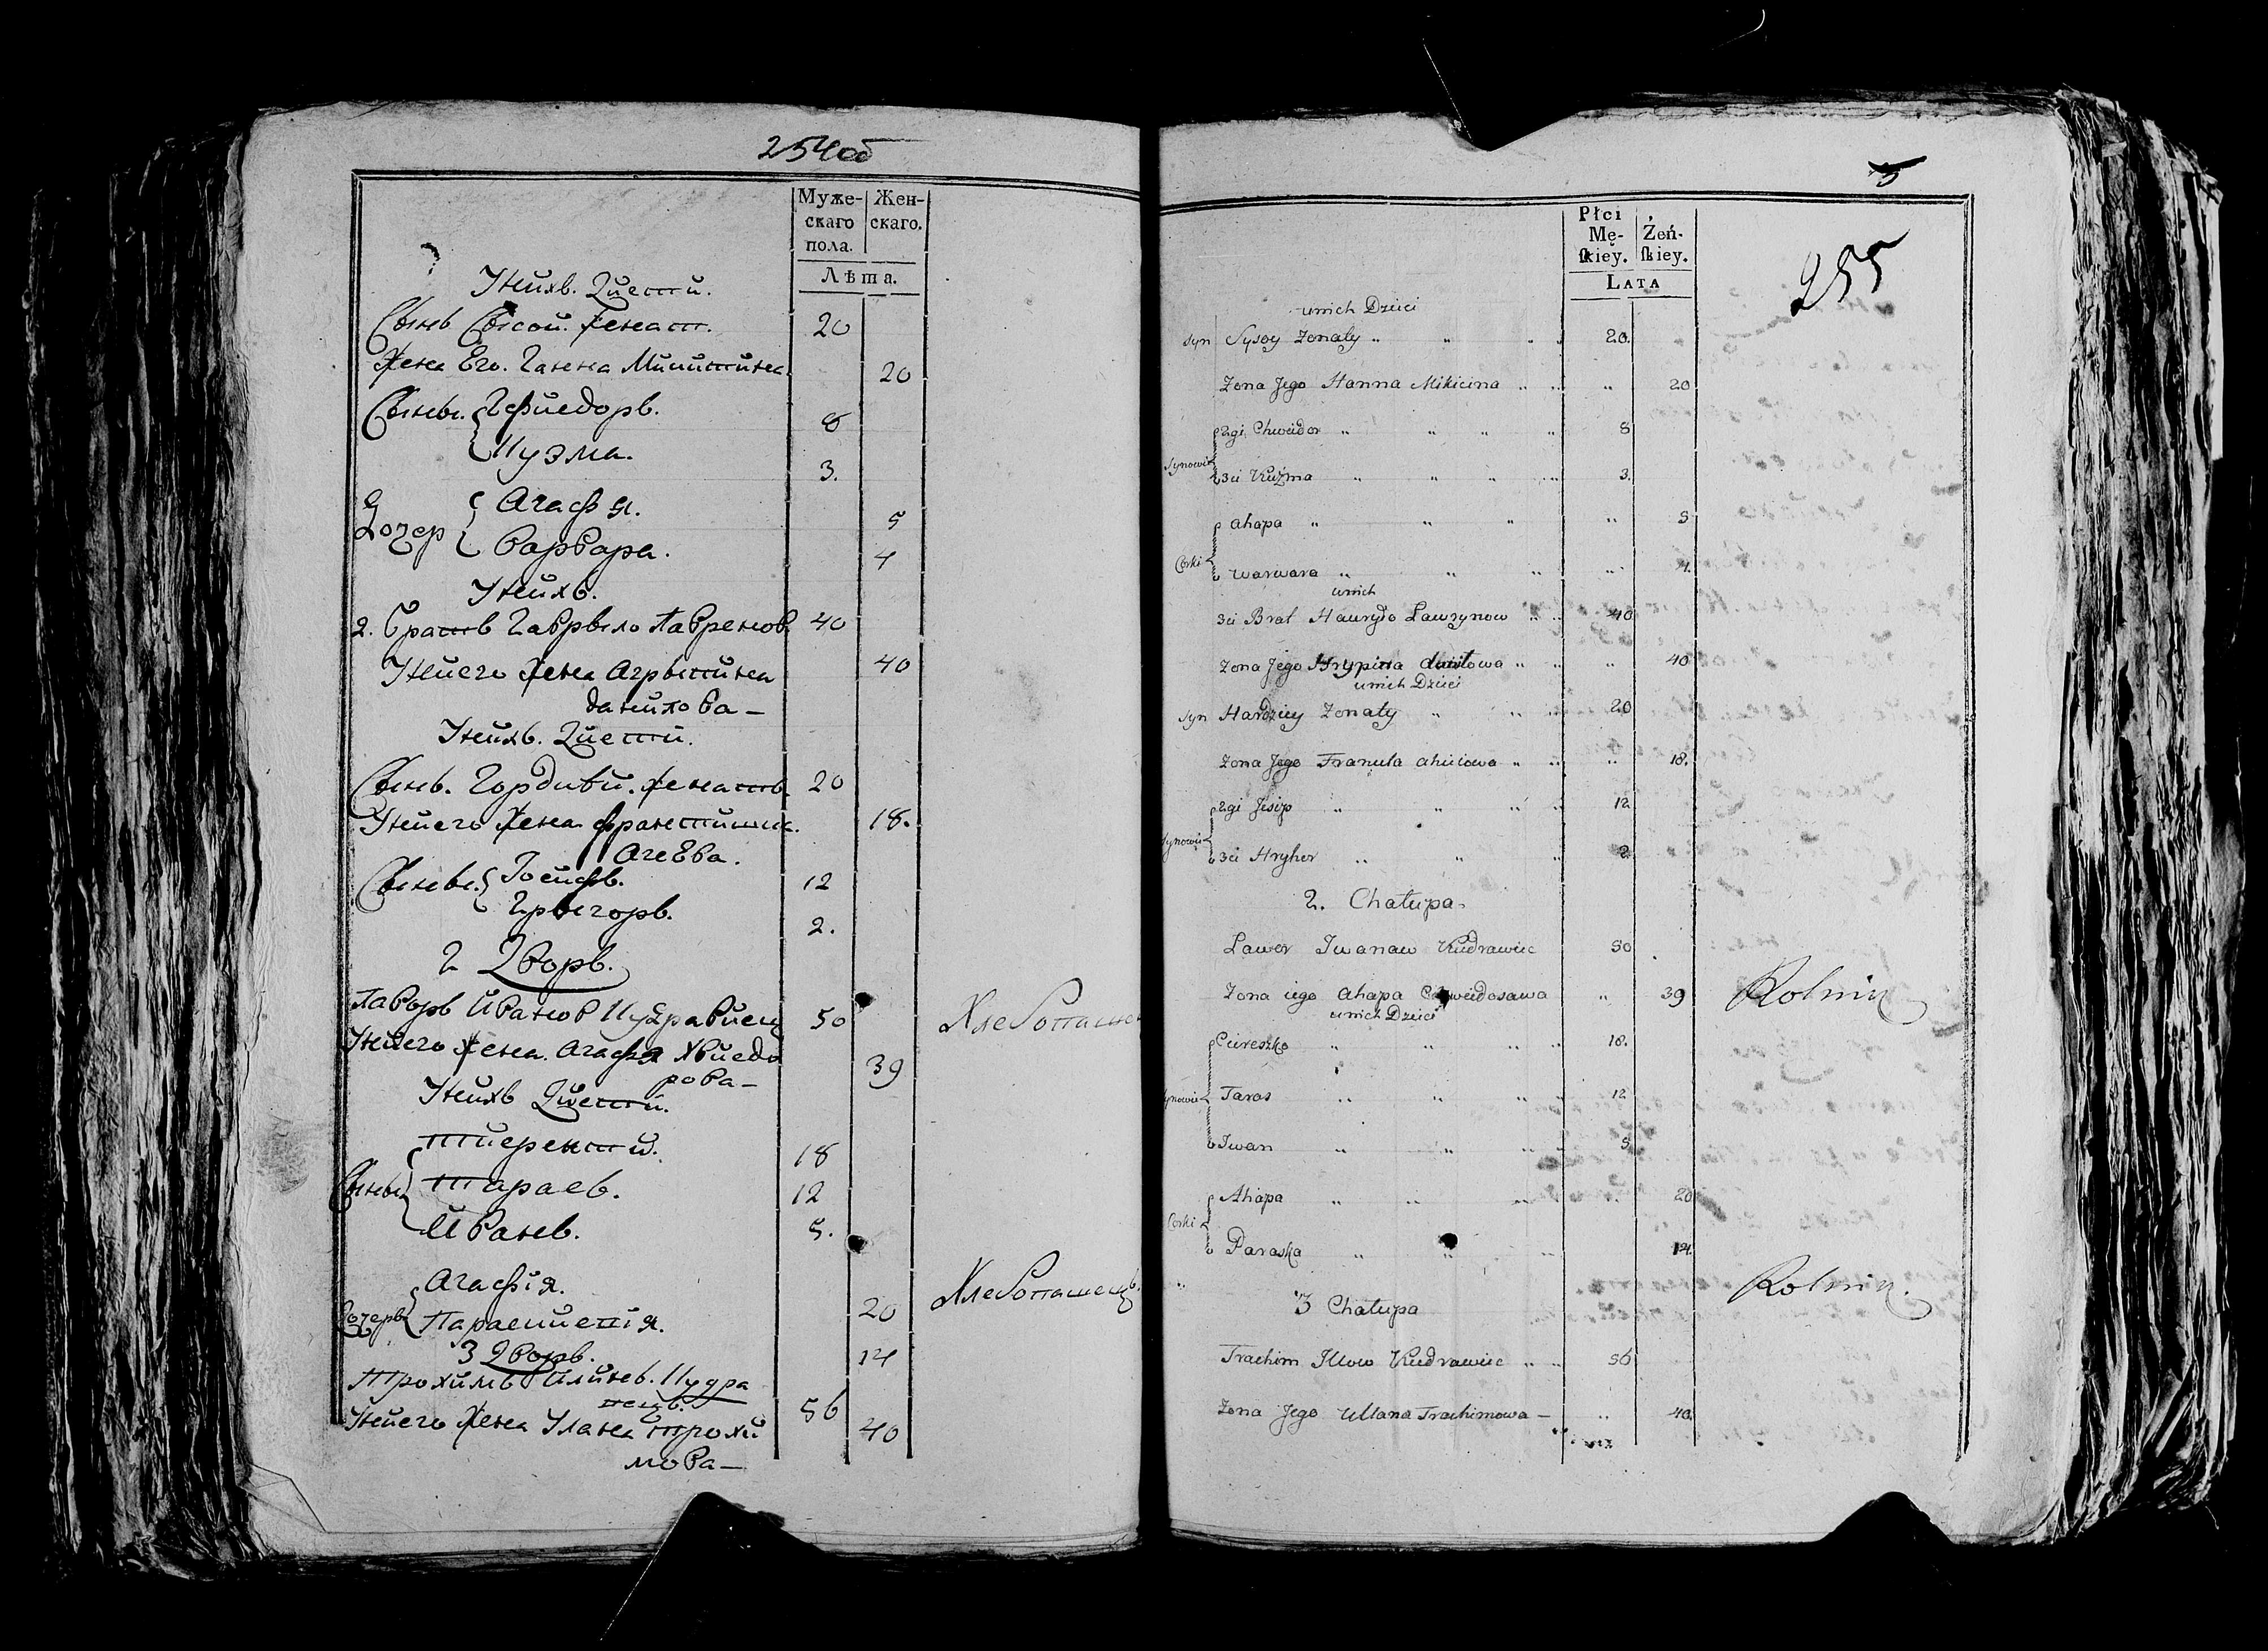 254об
Муже- Жен-
скаго скаго.
пола.
Лѣта.
Унихъ. Диети.
Сынъ Сысой. Женат. 20
Жена Его. Ганна Микитина 20
Сыны. Гфиедоръ. 8
Кузма. 3.
Дочер Агафя. 5
Варвара. 4
Унихъ.
2. Братъ Гаврыло Лавренов 40
Унего Жена Агрыпина 40
данилова —
Унихъ. Диети.
Сынъ. Гордиѣй. женатъ 20
Унего Жена 18.
Агеева.
Сыны. Іосифъ. 12
Грыгоръ. 2.
2 Дворъ.
Лаворъ Иванов Кудравиец 50
Унего Жена. Агафя Хвиедо 39
рова —
Унихъ Диети.
Тиерентий. 18
Сыны Тарасъ. 12
Иванъ. 5.
Агафія. 20
Дочеръ 14
3 Дворъ.
Трохимъ Илинъ. Кудра 56
вецъ.
Унего Жена Улана трохи 40
мова —
Хлебопашец
Хлебопашецъ.
5
255
Płci
Mę- Żeń-
skiey. skiey.
LATA
unich Dzieci
syn Sysoy Zonaty „ „ „ 20. „
Zona Jego Hanna Mikicina „ „ „ 20
Synowie 2gi Chwiedor „ „ „ „ 8
3ci Kuźma „ „ „ „ 3.
Corki Ahapa „ „ „ „ 5
Warwara „ „ „ „ 4.
unich
3ci Brat Hauryło Lawrynow „ „ 40
Zona Jego Hrypina daniłowa „ „ „ 40
unich Dzieci
syn Hardziey Zonaty „ „ „ 20
Zona Jego Franula Ahiiowa „ „ „ 18.
Synowie 2gi Jesip „ „ „ „ 12
3ci Hryher „ „ „ 2
2. Chałupa
Lawer Iwanaw Kudrawiec 50
Zona iego Ahapa Chwiedosawa „ 39
unich Dzieci
Ciereszko „ „ „ „ 18.
ynowie Taras „ „ „ „ 12
Iwan „ „ „ „ 5
Corki Ahapa „ „ „ „ 20
Paraska „ „ „ 14.
3 Chałupa
Trachim Illow Kudrawiec „ „ 56
Zona Jego Ullana Trachimowa — „ 40.
Rolnik
Rolnik.